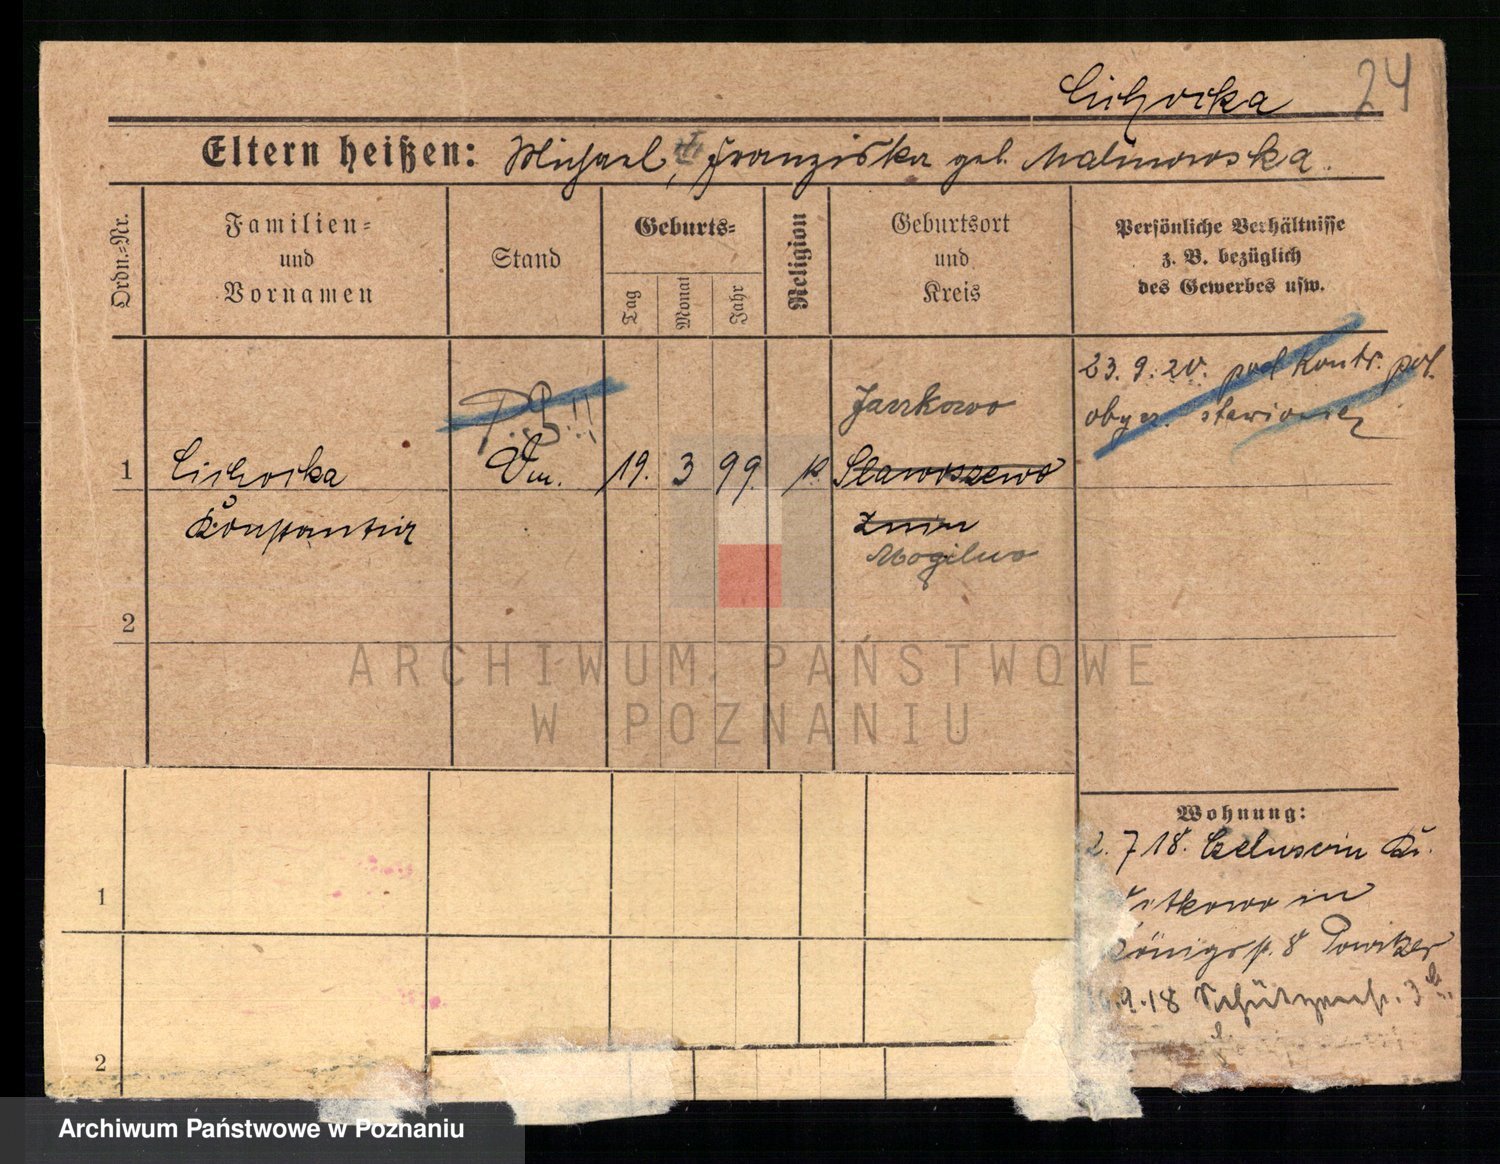 Cichocka 24
Eltern heißen: Michael, Franziska geb. Malinowska.
Ordn.=Nr.
Familien=
und
Vornamen
Stand
Geburts=
Tag
Monat
Jahr
Religion
Geburtsort
und
Kreis
Persönliche Verhältnisse
z. B. bezüglich
des Gewerbes usw.
23. 9. 20. pod kontr. pol.
Jankowo
1 Cichocka 19. 3 99. k. Stawoszewo
Konstantia Znin
Mogilno
2
ARCHIWUM PAŃSTWOWE
W POZNANIU
Wohnung:
2. 7 18. Czeluscin Kr.
Witkowo in
Königspl. 8
9. 18 Schützenstr. 3
1
2
Archiwum Państwowe w Poznaniu